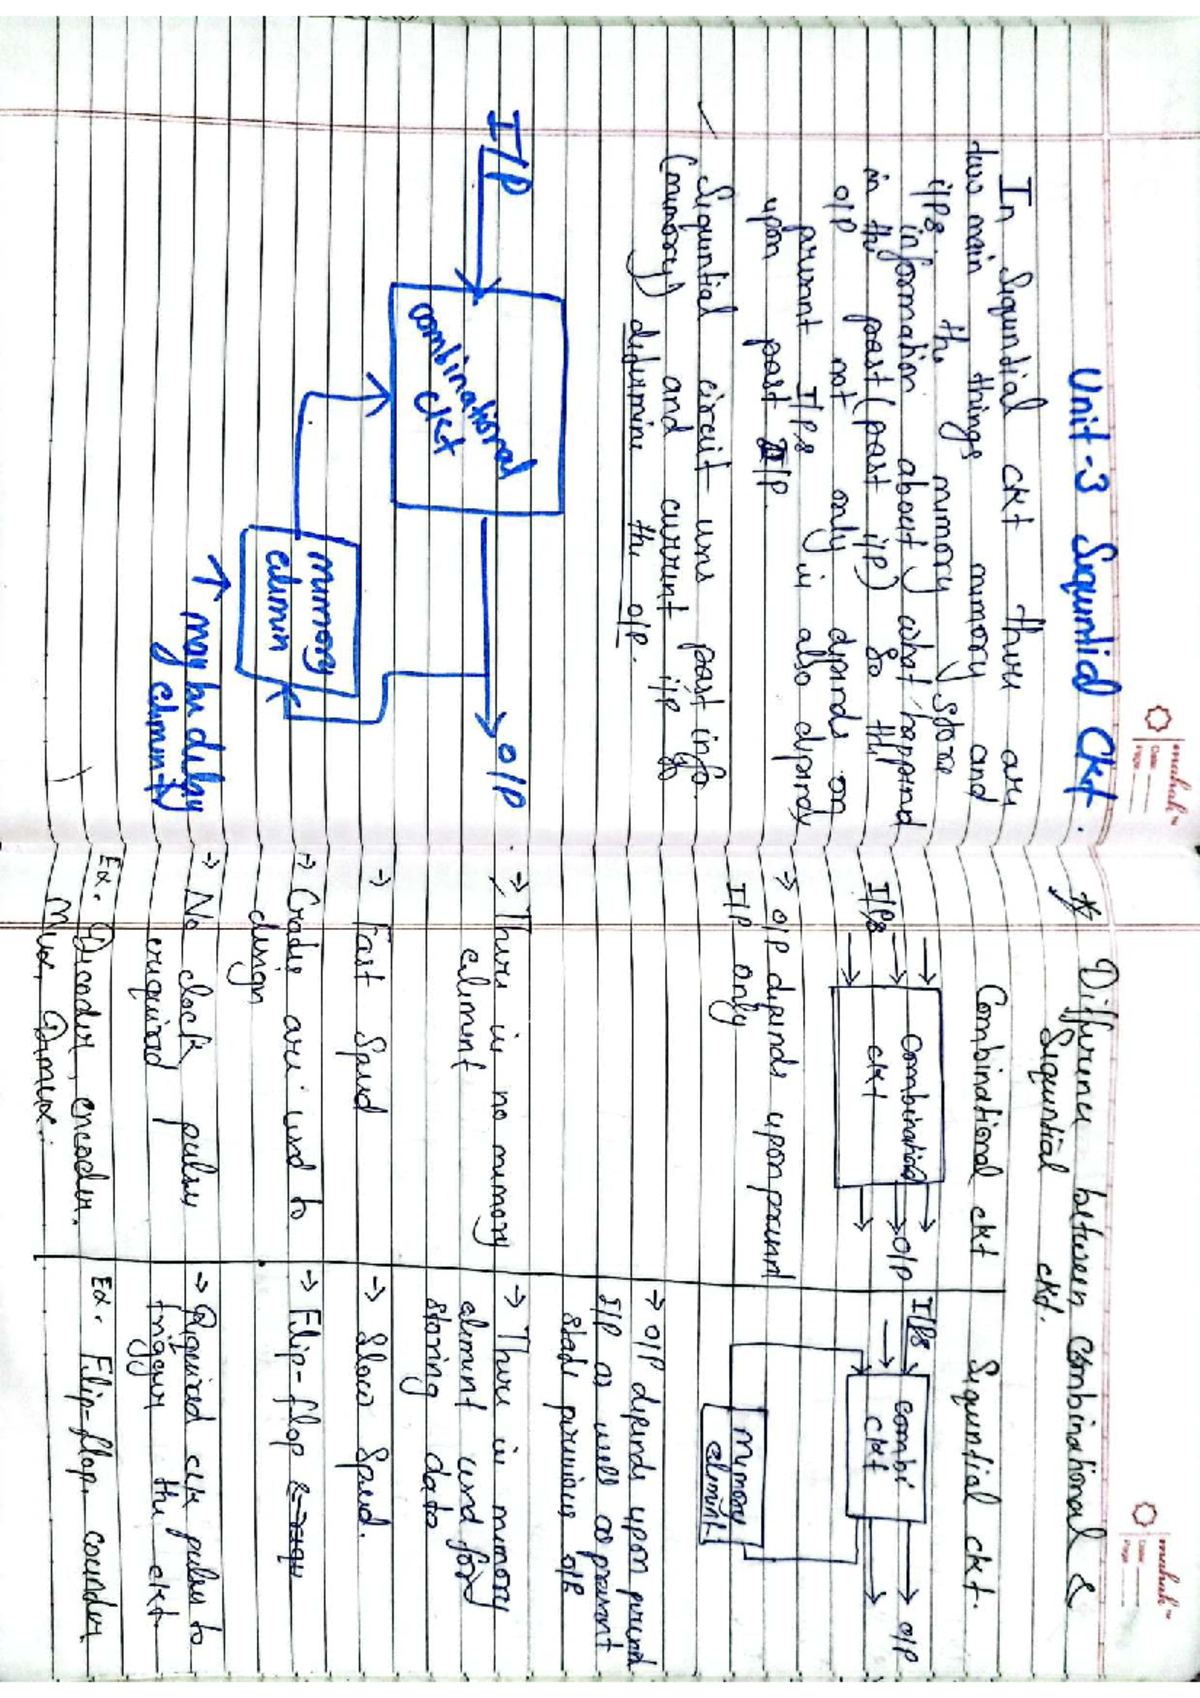 mahak™
Date:
Page:
Unit-3 Sequential Ckt
In Sequential ckt there are
two main things memory and
i/ps. the memory store
information about what happend
in the past (past i/p) so the
o/p not only depends on
present I/Ps is also depends
upon past I/P.
Sequential circuit uses past info.
(memory) and current i/p to
determine the o/p.
I/P
combinational
ckt
O/P
memory
elemen
↑ may be delay
element
mahak™
Date:
Page:
* Difference between combinational &
Sequential ckt.
Combinational ckt
Sequential ckt.
I/Ps
combinational
ckt
O/P
I/Ps
combi
ckt
O/P
memory
element
→ O/P depends upon present
I/P only
→ O/P depends upon present
I/P as well as present
state previous o/p
→ There is no memory
element
→ There is memory
element used for
storing data
→ Fast Speed
→ Slow Speed.
→ Gates are used to
design
→ Flip-flop &
→ No clock pulse
required
→ Required clk pulse to
trigger the ckt.
Ex. Decoder, encoder.
Mux, Demux.
Ex. Flip-flop, counder